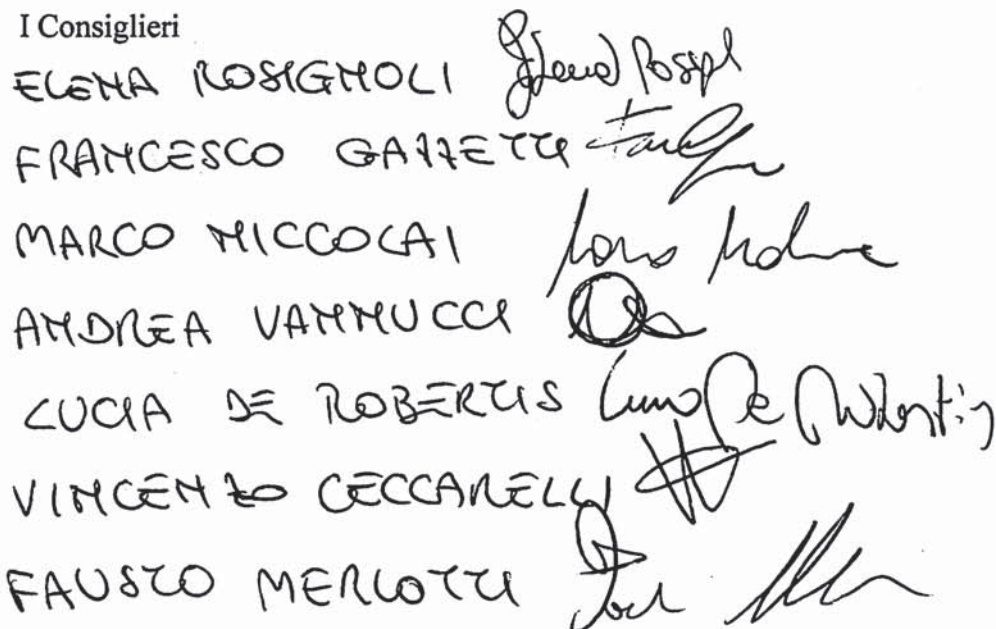 I Consiglieri
ELENA ROSIGNOLI
FRANCESCO GAZZETTI
MARCO NICCOLAI
ANDREA VANNUCCI
LUCIA DE ROBERTIS
VINCENZO CECCARELLI
FAUSTO MERLOTTI